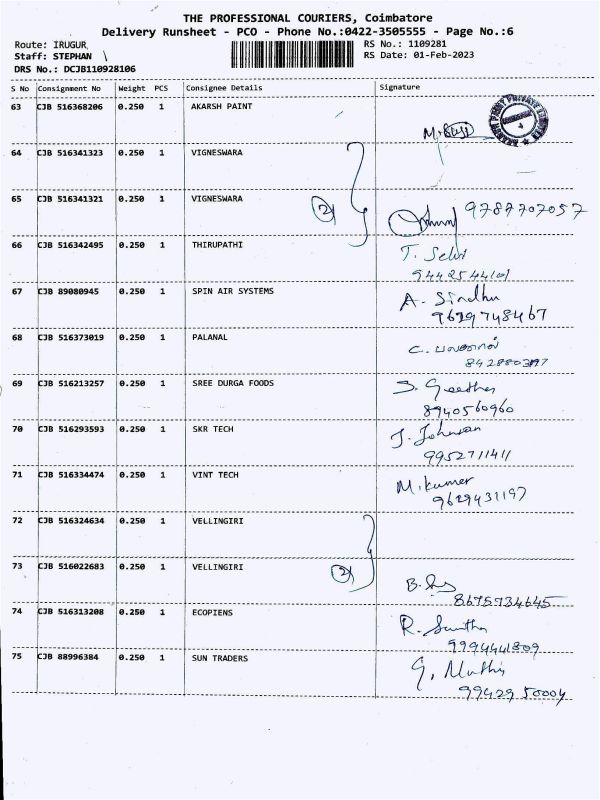 THE PROFESSIONAL COURIERS, Coimbatore
Delivery Runsheet - PCO - Phone No.:0422-3505555 - Page No.:6
Route: IRUGUR RS No.: 1109281
Staff: STEPHAN RS Date: 01-Feb-2023
DRS No.: DCJB110928106
S No Consignment No Weight PCS Consignee Details Signature
63 CJB 516368206 0.250 1 AKARSH PAINT
64 CJB 516341323 0.250 1 VIGNESWARA
65 CJB 516341321 0.250 1 VIGNESWARA 2 9787707057
66 CJB 516342495 0.250 1 THIRUPATHI T. Selvi
67 CJB 89080945 0.250 1 SPIN AIR SYSTEMS A. Sindhu
9629748467
68 CJB 516373019 0.250 1 PALANAL C.
69 CJB 516213257 0.250 1 SREE DURGA FOODS S. Geetha
8940560960
70 CJB 516293593 0.250 1 SKR TECH J. Johnson
9952711411
71 CJB 516334474 0.250 1 VINT TECH M. Kumar
9629431197
72 CJB 516324634 0.250 1 VELLINGIRI
73 CJB 516022683 0.250 1 VELLINGIRI 2 B.
8675734645
74 CJB 516313208 0.250 1 ECOPIENS R.
9994441809
75 CJB 88996384 0.250 1 SUN TRADERS G.
9942950004